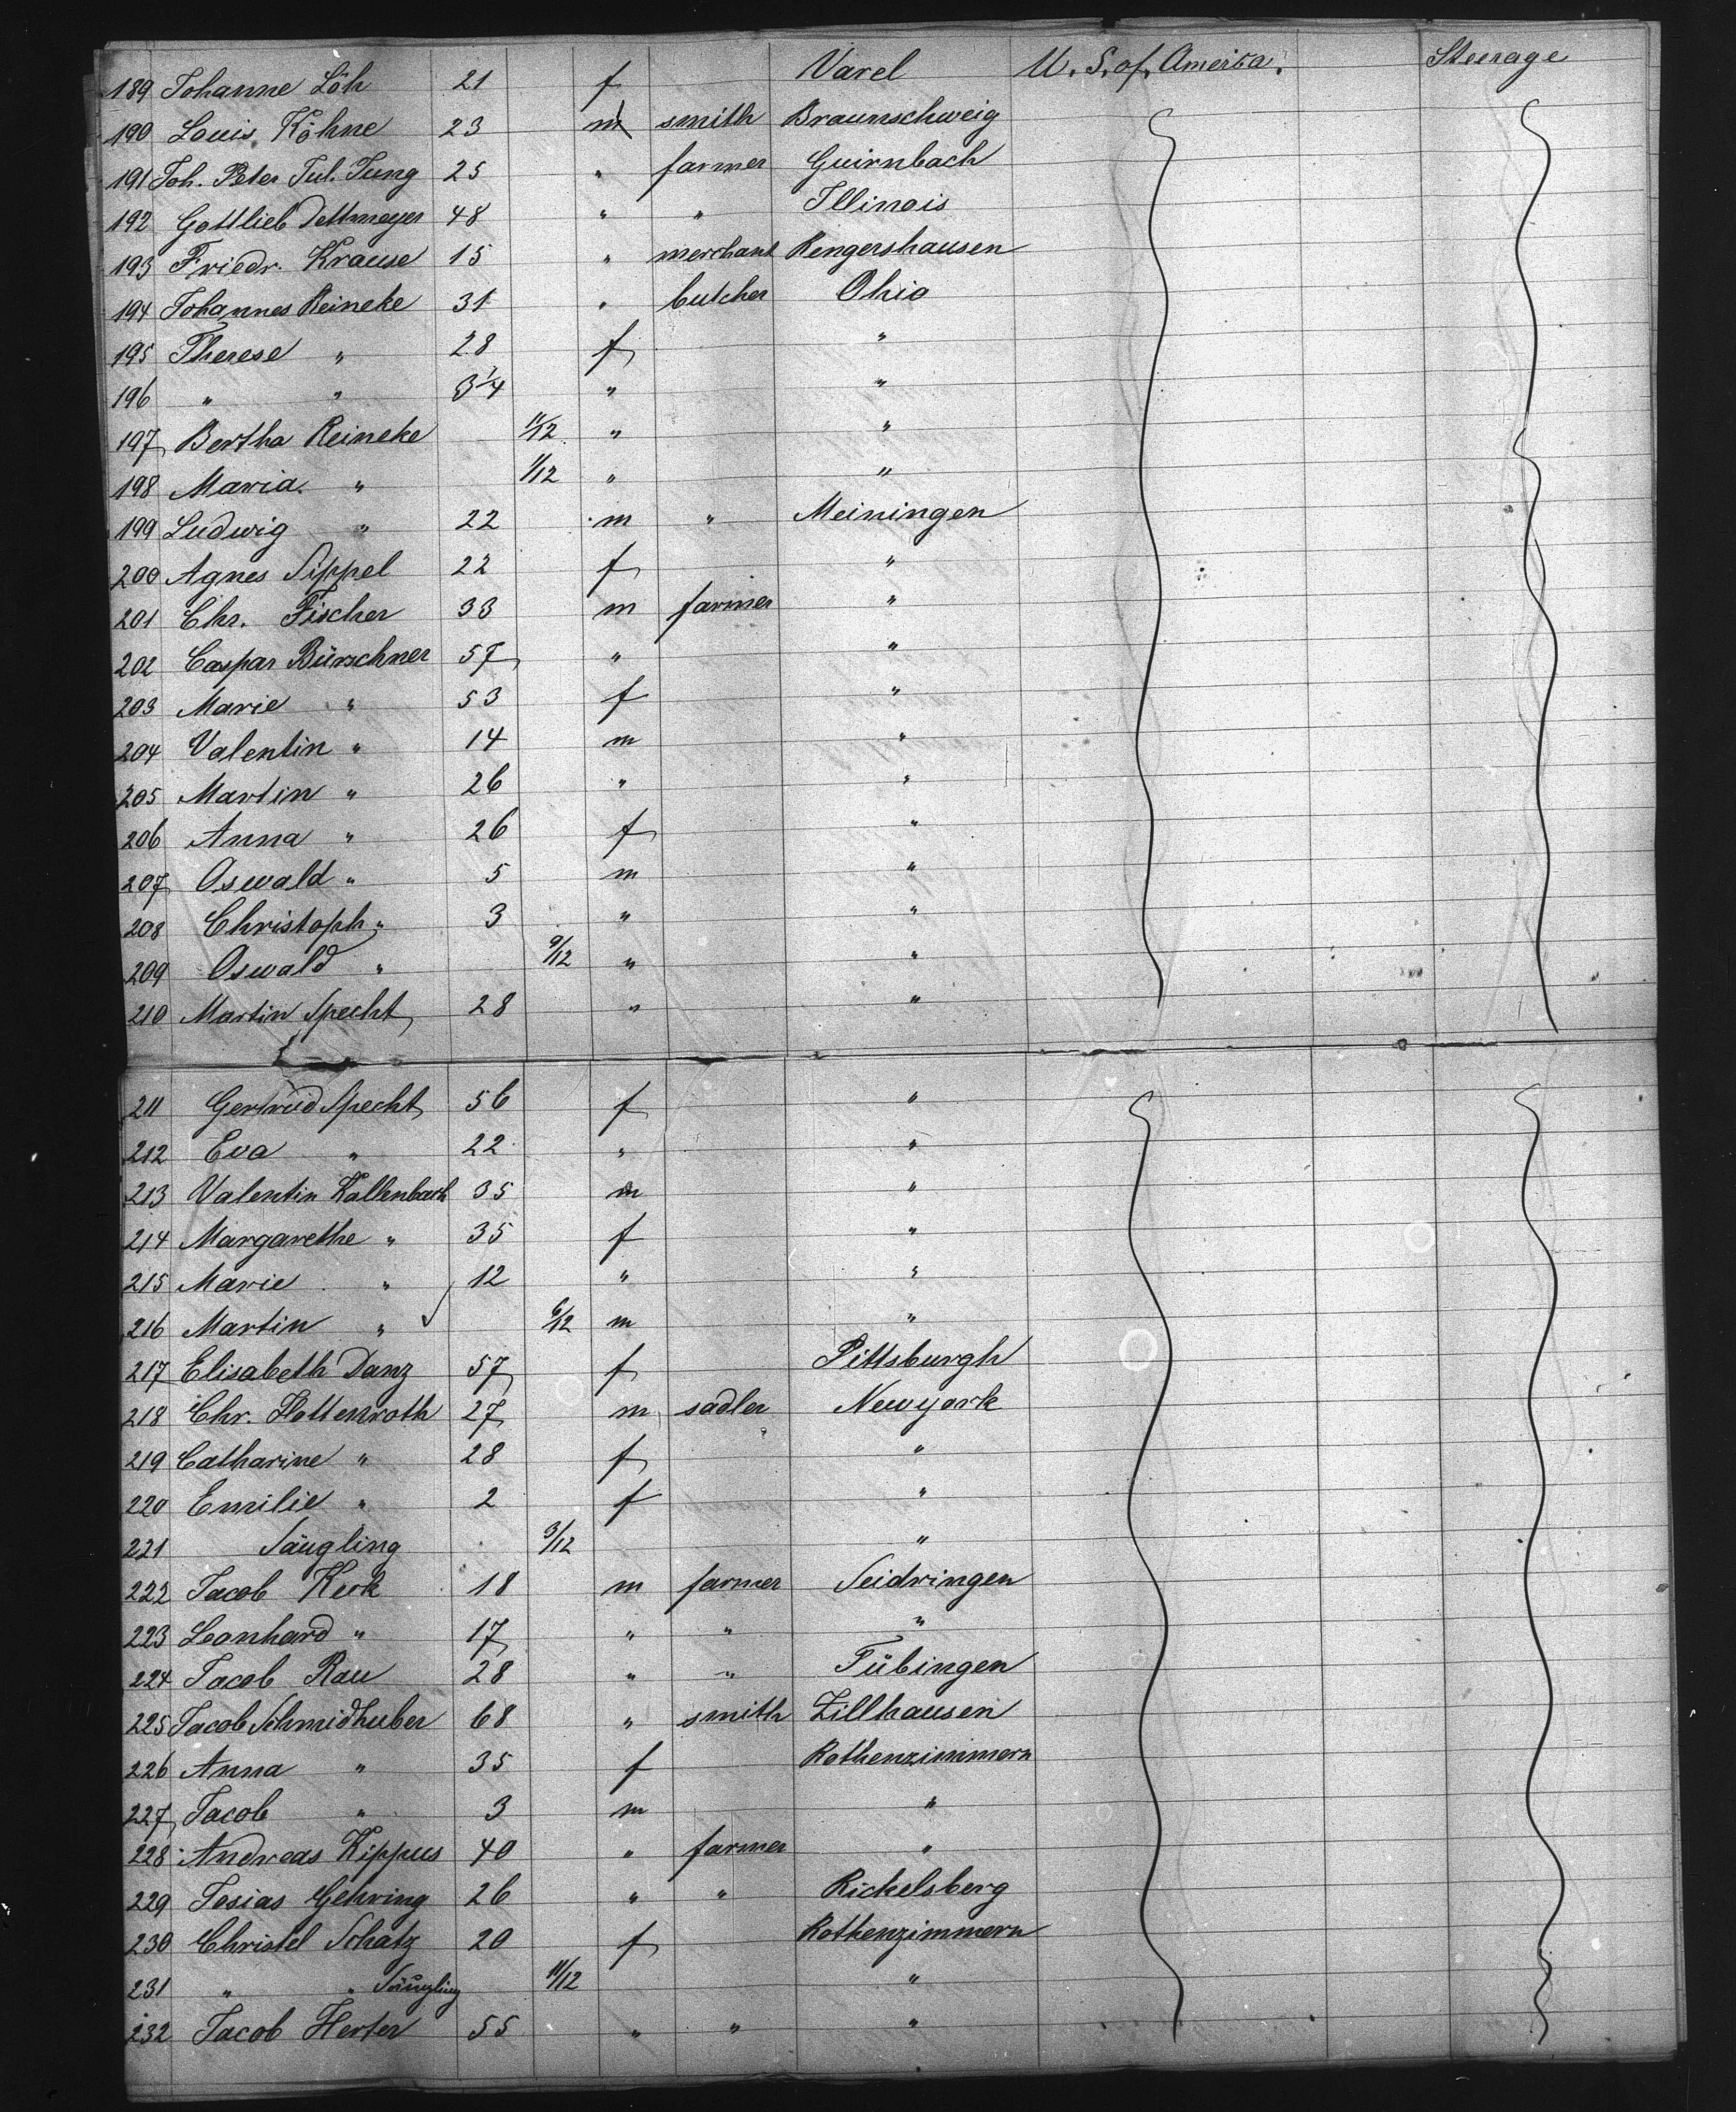 189 Johanne Löh 21 f Varel U. S. of. America. Steerage
190 Louis Köhne 23 m smith Braunschweig
191 Joh. Peter Jul. Jung 25 " farmer Guirnbach
192 Gottlieb Dettmeyer 48 " " Illinois
193 Friedr. Krause 15 " merchant Rengershausen
194 Johannes Reineke 31 " butcher Ohio
195 Therese " 28 f "
196 " " 3 1/4 " "
197 Bertha Reineke 11/12 " "
198 Maria " 1/12 " "
199 Ludwig " 22 m " Meiningen
200 Agnes Sippel 22 f "
201 Chr. Fischer 33 m farmer "
202 Caspar Bürschner 57 " "
203 Marie " 53 f "
204 Valentin " 14 m "
205 Martin " 26 " "
206 Anna " 26 f "
207 Oswald " 5 m "
208 Christoph " 3 " "
209 Oswald " 9/12 " "
210 Martin Specht 28 " "
211 Gertrud Specht 56 f "
212 Eva " 22 " "
213 Valentin Kallenbach 35 m "
214 Margarethe " 35 f "
215 Marie " 12 " "
216 Martin " 6/12 m "
217 Elisabeth Danz 57 f Pittsburgh
218 Chr. Hottenroth 27 m sadler Newyork
219 Catharine " 28 f "
220 Emilie " 2 f "
221 Säugling 3/12 "
222 Jacob Keck 18 m farmer Seidringen
223 Leonhard " 17 " " "
224 Jacob Rau 28 " " Tübingen
225 Jacob Schmidhuber 68 " smith Zillhausen
226 Anna " 35 f Rothenzimmern
227 Jacob " 3 m "
228 Andreas Kippus 40 " farmer "
229 Josias Gehring 26 " " Rickelsberg
230 Christel Schatz 20 f Rothenzimmern
231 " " Säugling 11/12 "
232 Jacob Herter 55 " " "